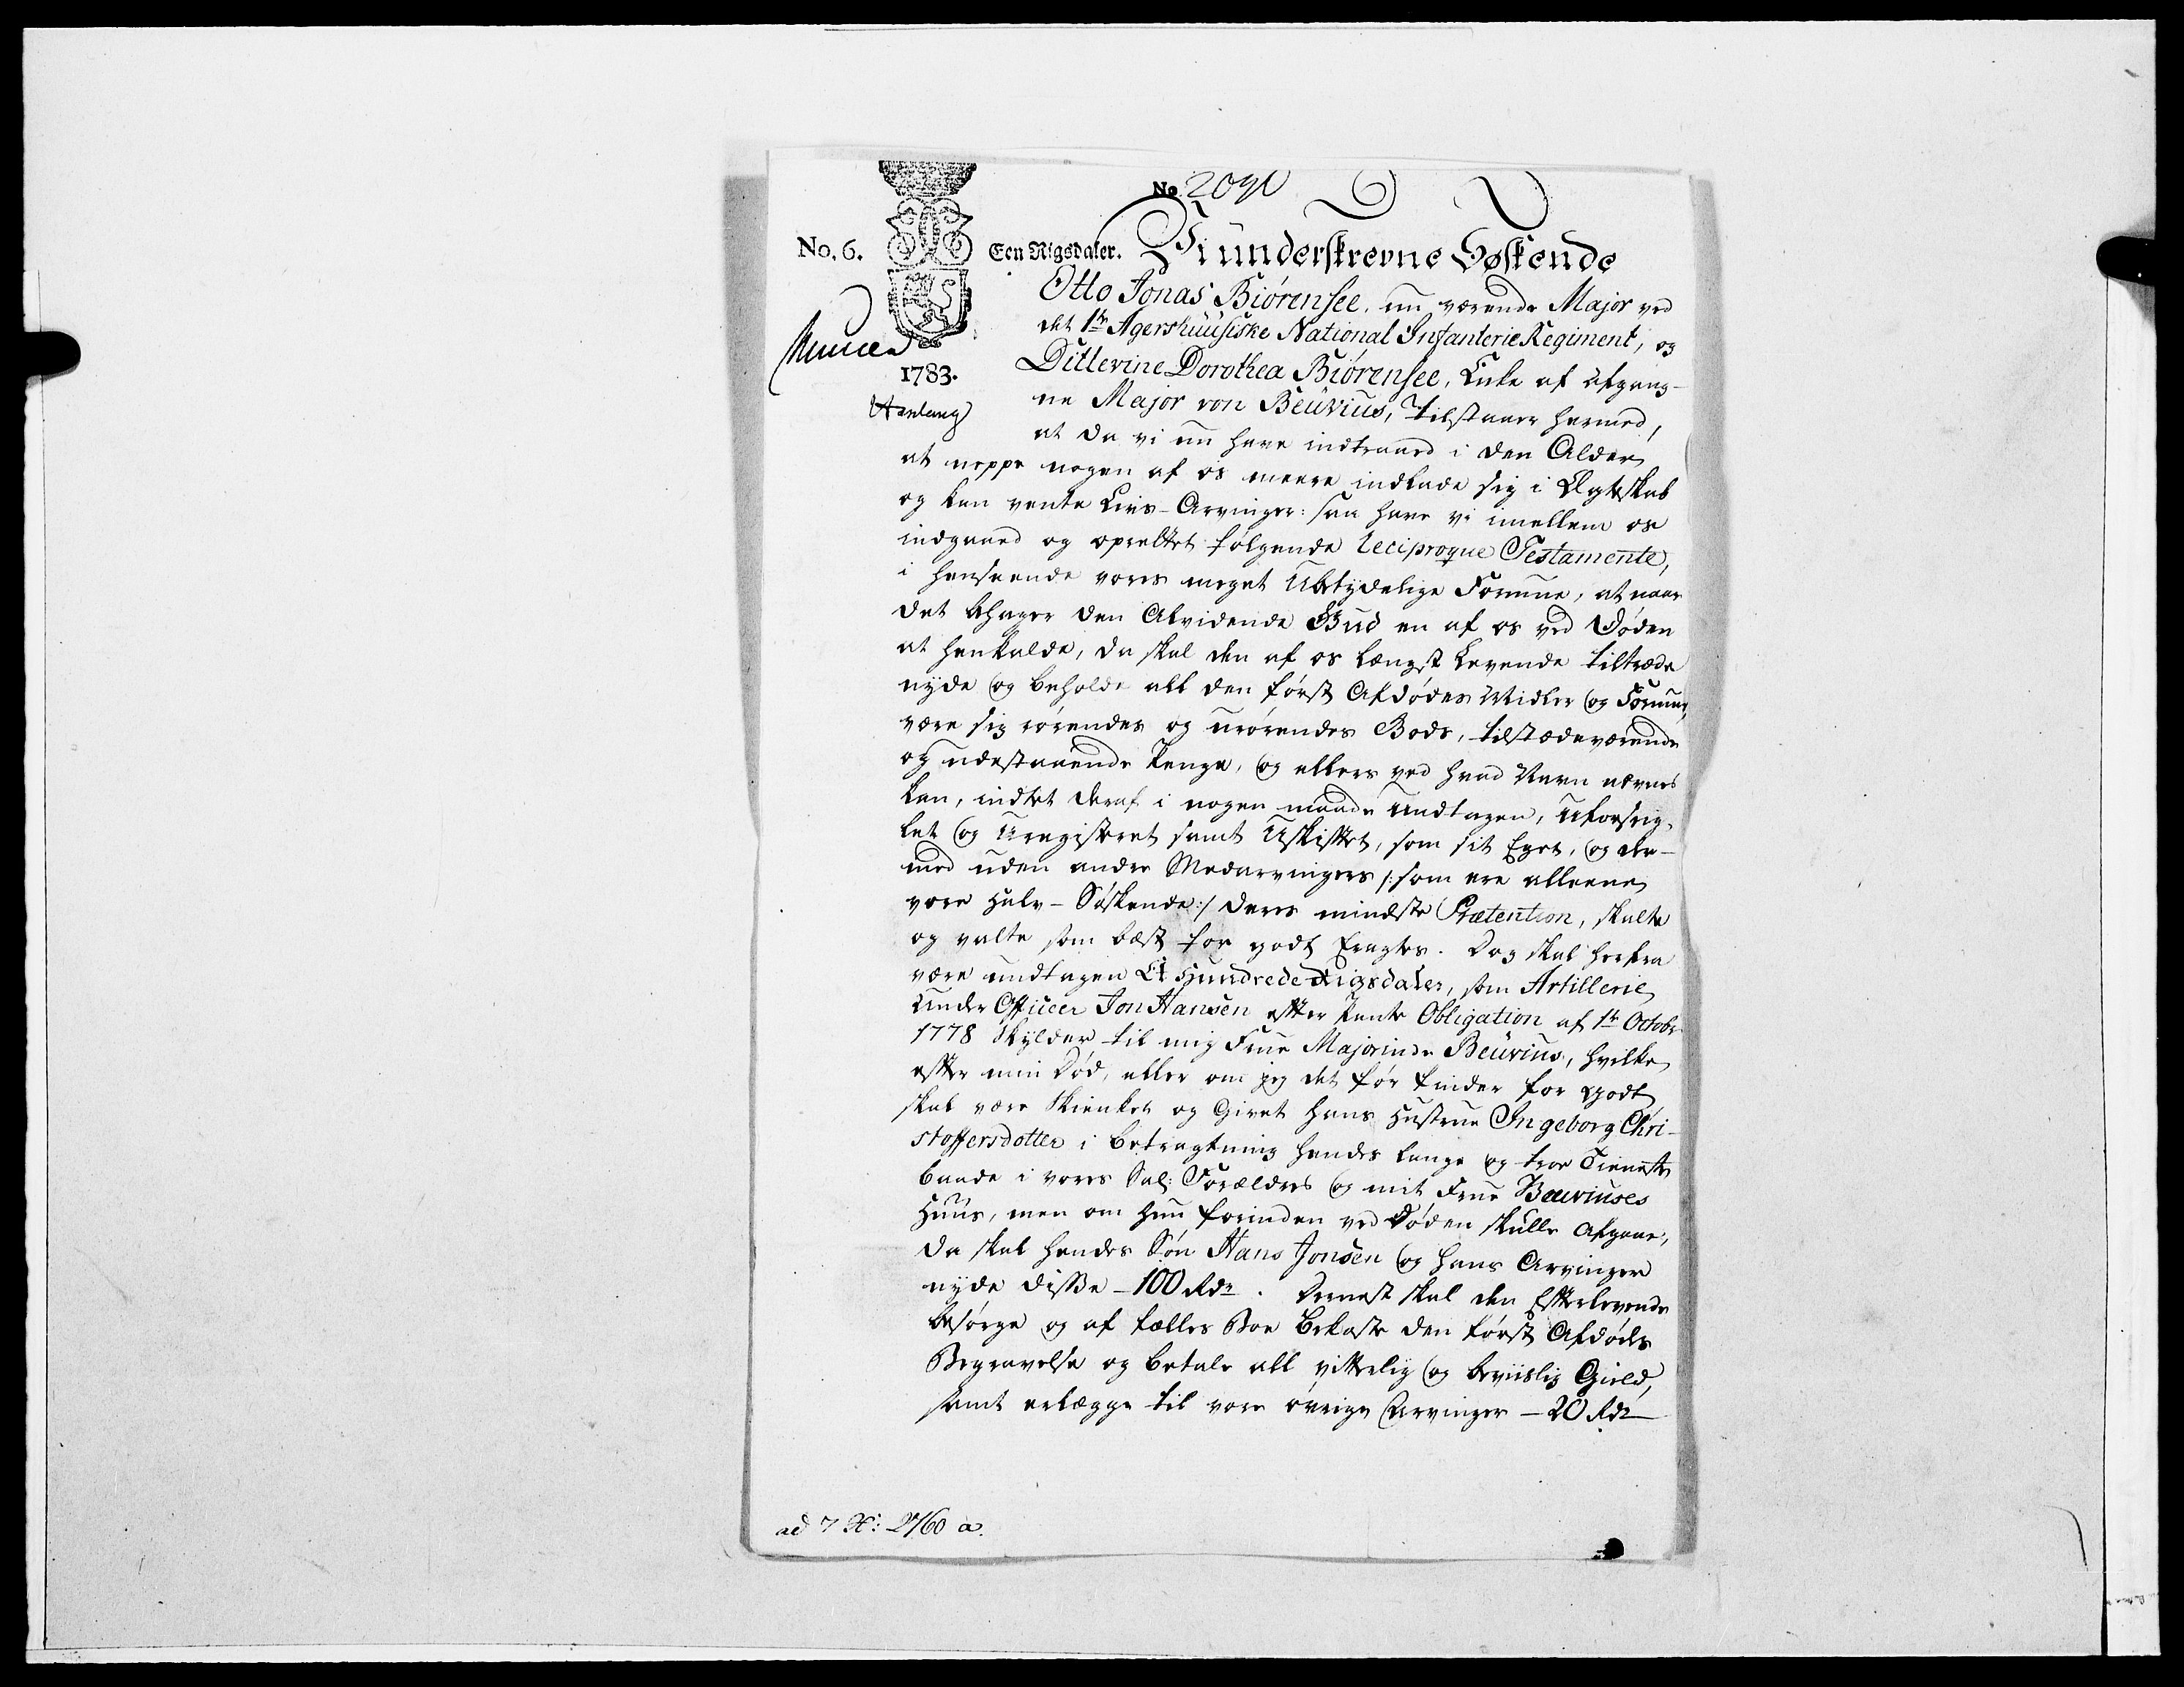 No. 2091
No. 6. Een Rigsdaler. Vi underskrevne Søskende
Otto Jonas Biörensee, nu værende Major ved
det 1te Agershuusiske National Infanterie Regiment, og
1783.
Ditlevine Dorothea Biörensee, Enke af afgang-
ne Major von Beüvius, tilstaaer hermed,
at da vi nu have indtraad i den Alder
at neppe nogen af os meere indlade sig i Ægteskab
og kan vente Livs-Arvinger: saa have vi imellem os
indgaaed og oprettet følgende reciproque Testamente,
i henseende vores meget Ubetydelige Formue, at naar
det behager den Alvidende Gud en af os ved Døden
at henkalde, da skal den af os længst Levende tiltræde
nyde og beholde all den først Afdødes Midler og Formue,
være sig rørendes og urørendes Gods, tilstædeværende
og udestaaende Penge, og ellers ved hvad Navn nævnes
kan, indtet deraf i nogen maade Undtagen, Uforseig-
let og Uregisteret samt Uskiftet, som sit Eget, og der-
med uden andre Medarvingers /: som ere alleene
vore Halv-Søskende :/ deres mindste Prætention, skalte
og valte som bæst for godt Eragtes. Dog skal herfra
være undtagen Et Hundrede Rigsdaler, som Artillerie
Under Officeer Jon Hansen efter Pante Obligation af 1te Octobr
1778 Skylder til mig Frue Majorinde Beüvius, hvilke
efter min Død, eller om jeg det før finder for godt
skal være Skienket og Givet hans Hustrue Ingeborg Chri-
stoffersdotter i betragtning hendes lange og troe Tieneste
baade i vores Sal: Forældres og mit Frue Beuviuses
Huus, men om Hun forinden ved Døden skulle Afgaae,
da skal hendes Søn Hans Jonsen og hans Arvinger
nyde disse - 100 Rdr. Dernest skal den Efterlevende
besørge og af fælles Boe Bekoste den først Afdødes
Begravelse og betale all vitterlig og beviislig Gield,
samt erlægge til vore øvrige Arvinger - 20 Rdr
ad 7 2760 a.